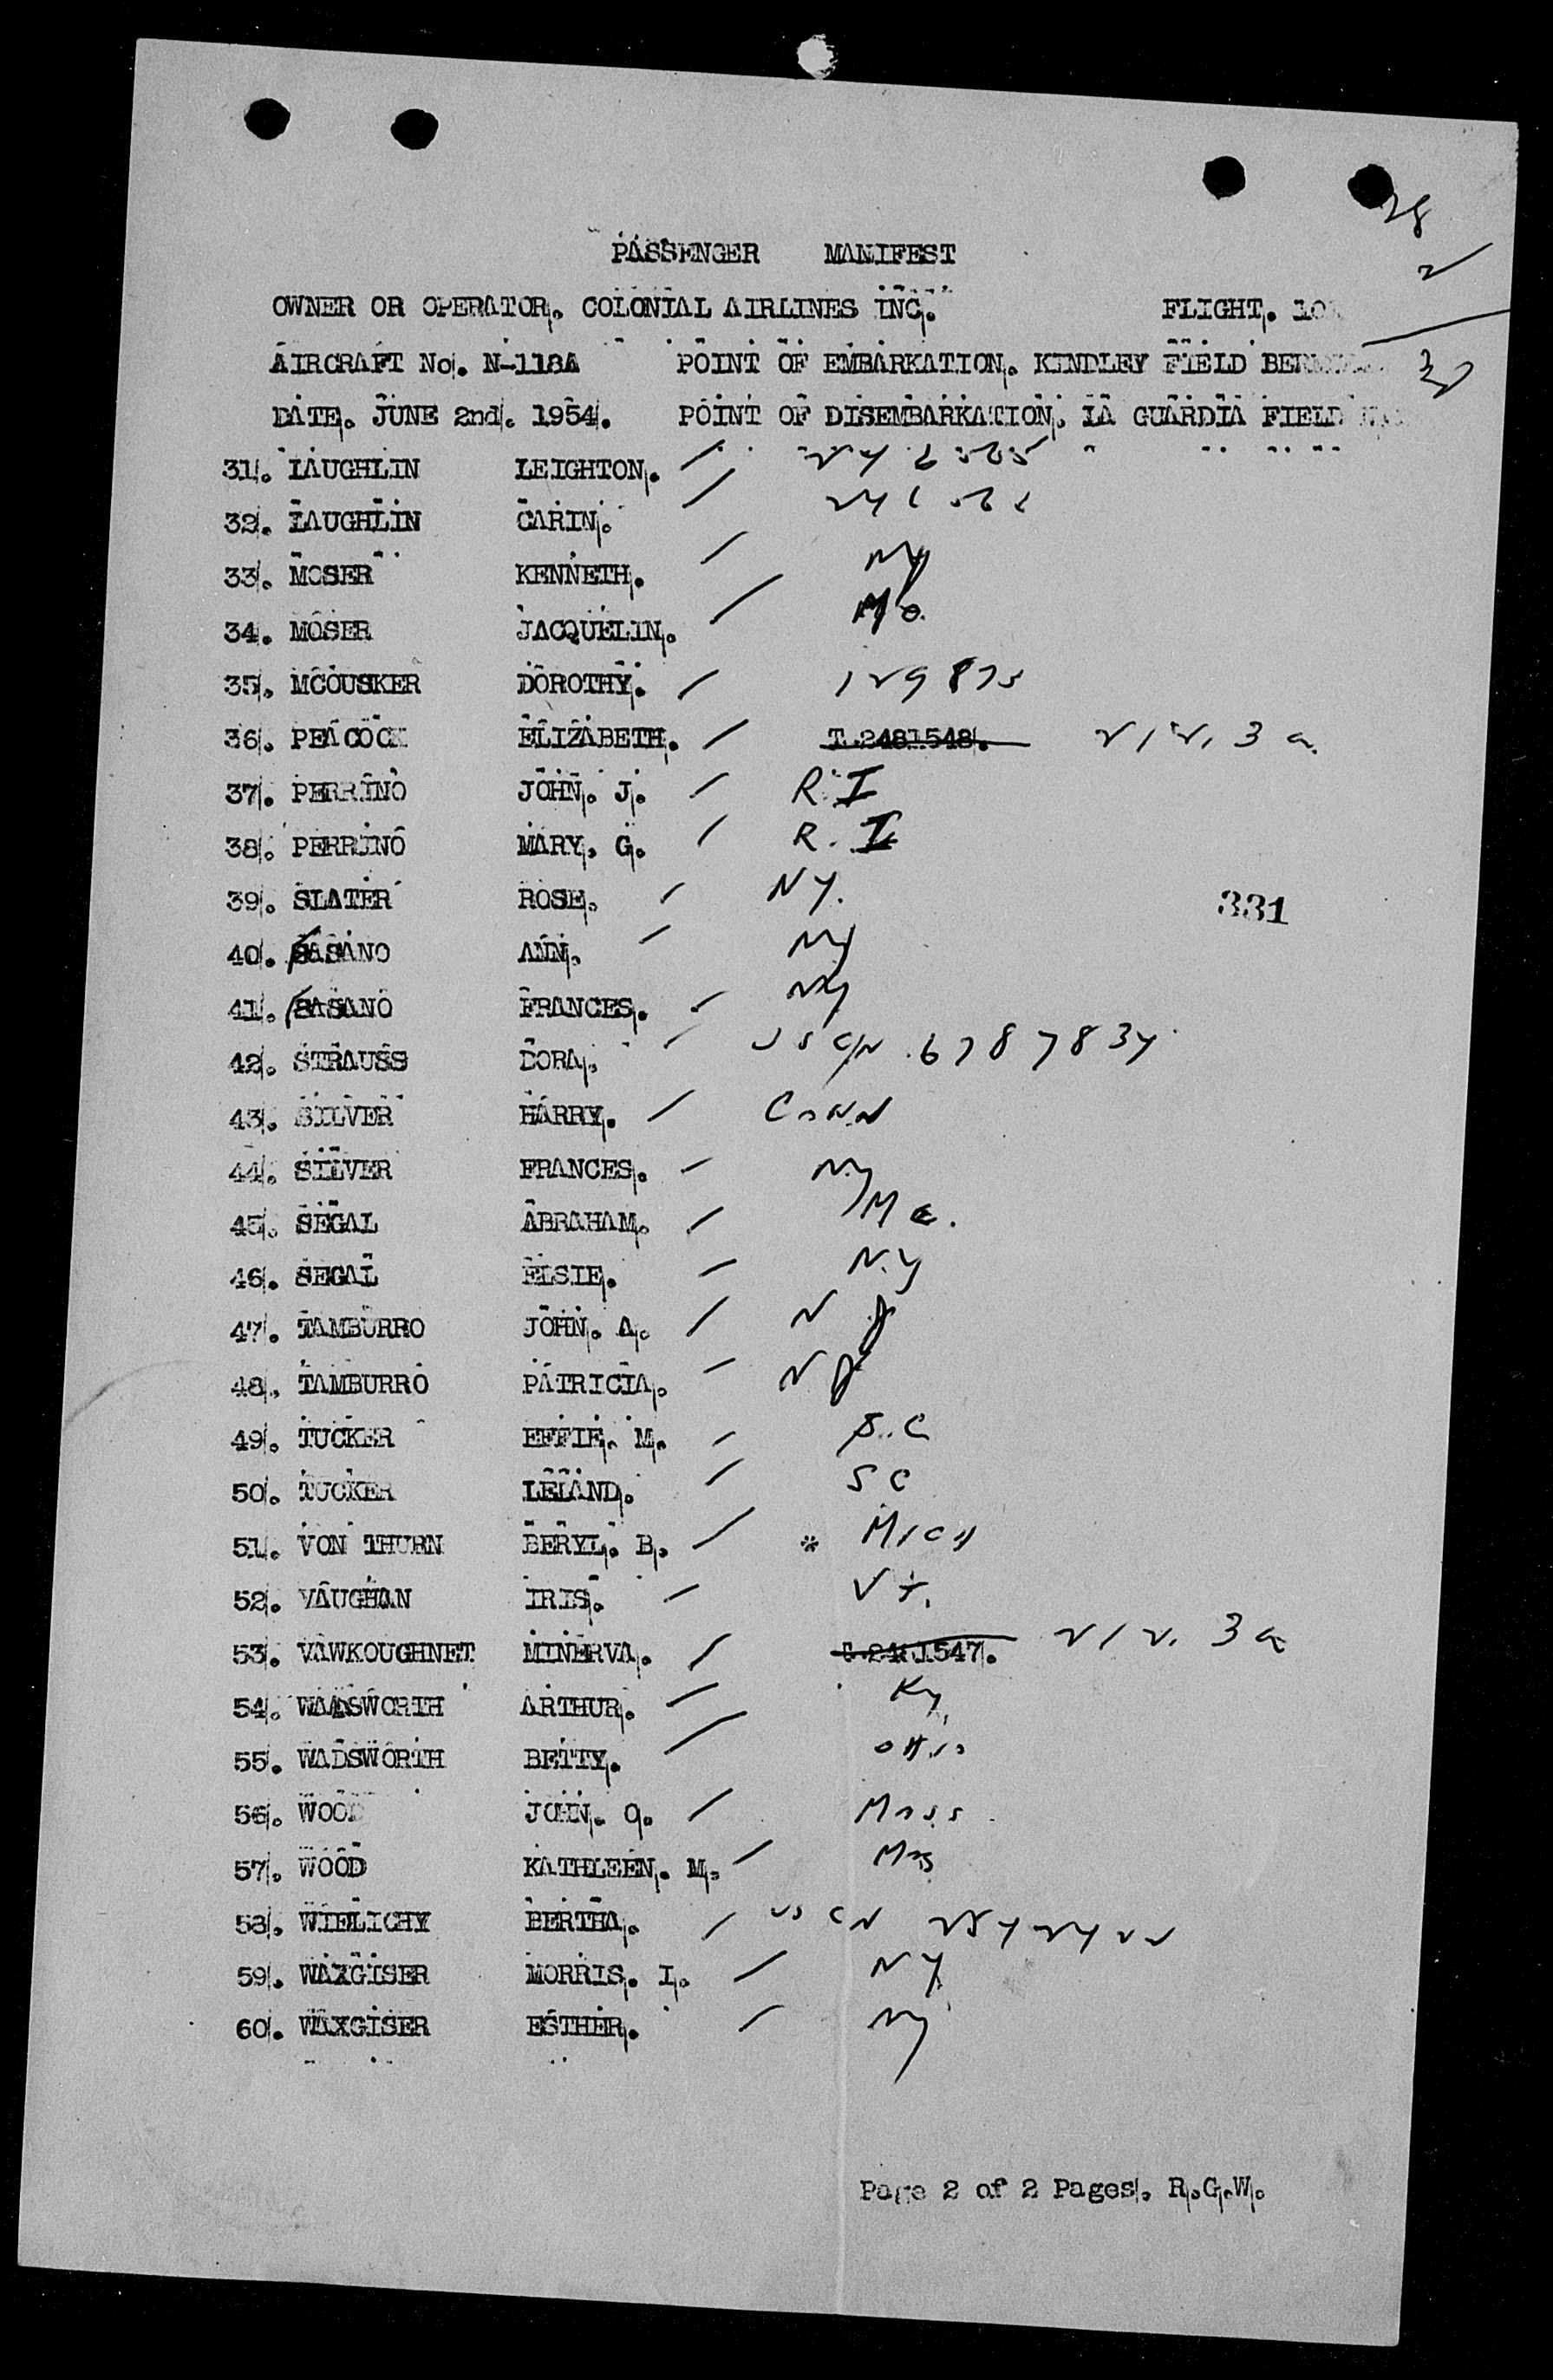 28
2
30
PASSENGER MANIFEST
OWNER OR OPERATOR. COLONIAL AIRLINES INC. FLIGHT.
AIRCRAFT No. N-118A POINT OF EMBARKATION. KINDLEY FIELD
DATE. JUNE 2nd. 1954. POINT OF DISEMBARKATION. LA GUARDIA FIELD
31. LAUGHLIN LEIGHTON. /
32. LAUGHLIN CARIN. /
33. MOSER KENNETH. / NY
34. MOSER JACQUELIN. / Mo.
35. MCOUSKER DOROTHY. / 129875
36. PEACOCK ELIZABETH. / T.2481548. 212, 3 a.
37. PERRINO JOHN. J. / R.I
38. PERRINO MARY. G. / R. I
39. SLATER ROSE. / NY.
331
40. SASANO ANN. / NY
41. SASANO FRANCES. / NY
42. STRAUSS DORA. / US C/N 6787834
43. SILVER HARRY. / CONN
44. SILVER FRANCES. / N.y
45. SEGAL ABRAHAM. / Me.
46. SEGAL ELSIE. / N.y
47. TAMBURRO JOHN. A. / N J
48. TAMBURRO PATRICIA. / N J
49. TUCKER EFFIE. M. / S.C
50. TUCKER LELAND. / S C
51. VON THURN BERYL. B. / * MICH
52. VAUGHAN IRIS. / Vt.
53. VAWKOUGHNET MINERVA. / T.2481547. 212. 3 a
54. WADSWORTH ARTHUR. / Ky.
55. WADSWORTH BETTY. / OHIO
56. WOOD JOHN. Q. / Mass
57. WOOD KATHLEEN. M. / Mas
58. WIELICHY BERTHA. / US CN
59. WAXGISER MORRIS. I. / NY
60. WAXGISER ESTHER. / NY
Page 2 of 2 Pages. R.G.W.